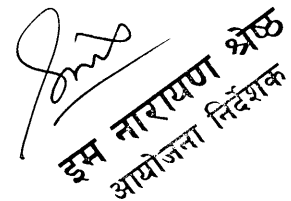 इस नारायण श्रेष्ठ
आयोजना निर्देशक